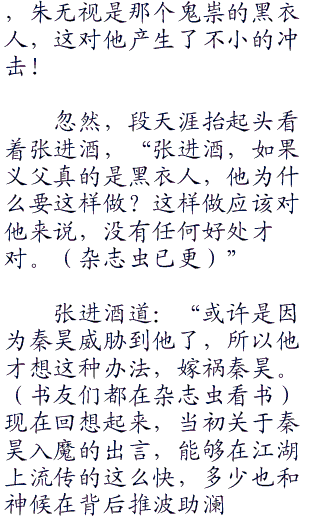 ，朱无视是那个鬼祟的黑衣
人，这对他产生了不小的冲
击！
忽然，段天涯抬起头看
着张进酒，“张进酒，如果
义父真的是黑衣人，他为什
么要这样做？这样做应该对
他来说，没有任何好处才
对。（杂志虫已更）”
张进酒道：“或许是因
为秦昊威胁到他了，所以他
才想这种办法，嫁祸秦昊。
（书友们都在杂志虫看书）
现在回想起来，当初关于秦
昊入魔的出言，能够在江湖
上流传的这么快，多少也和
神候在背后推波助澜